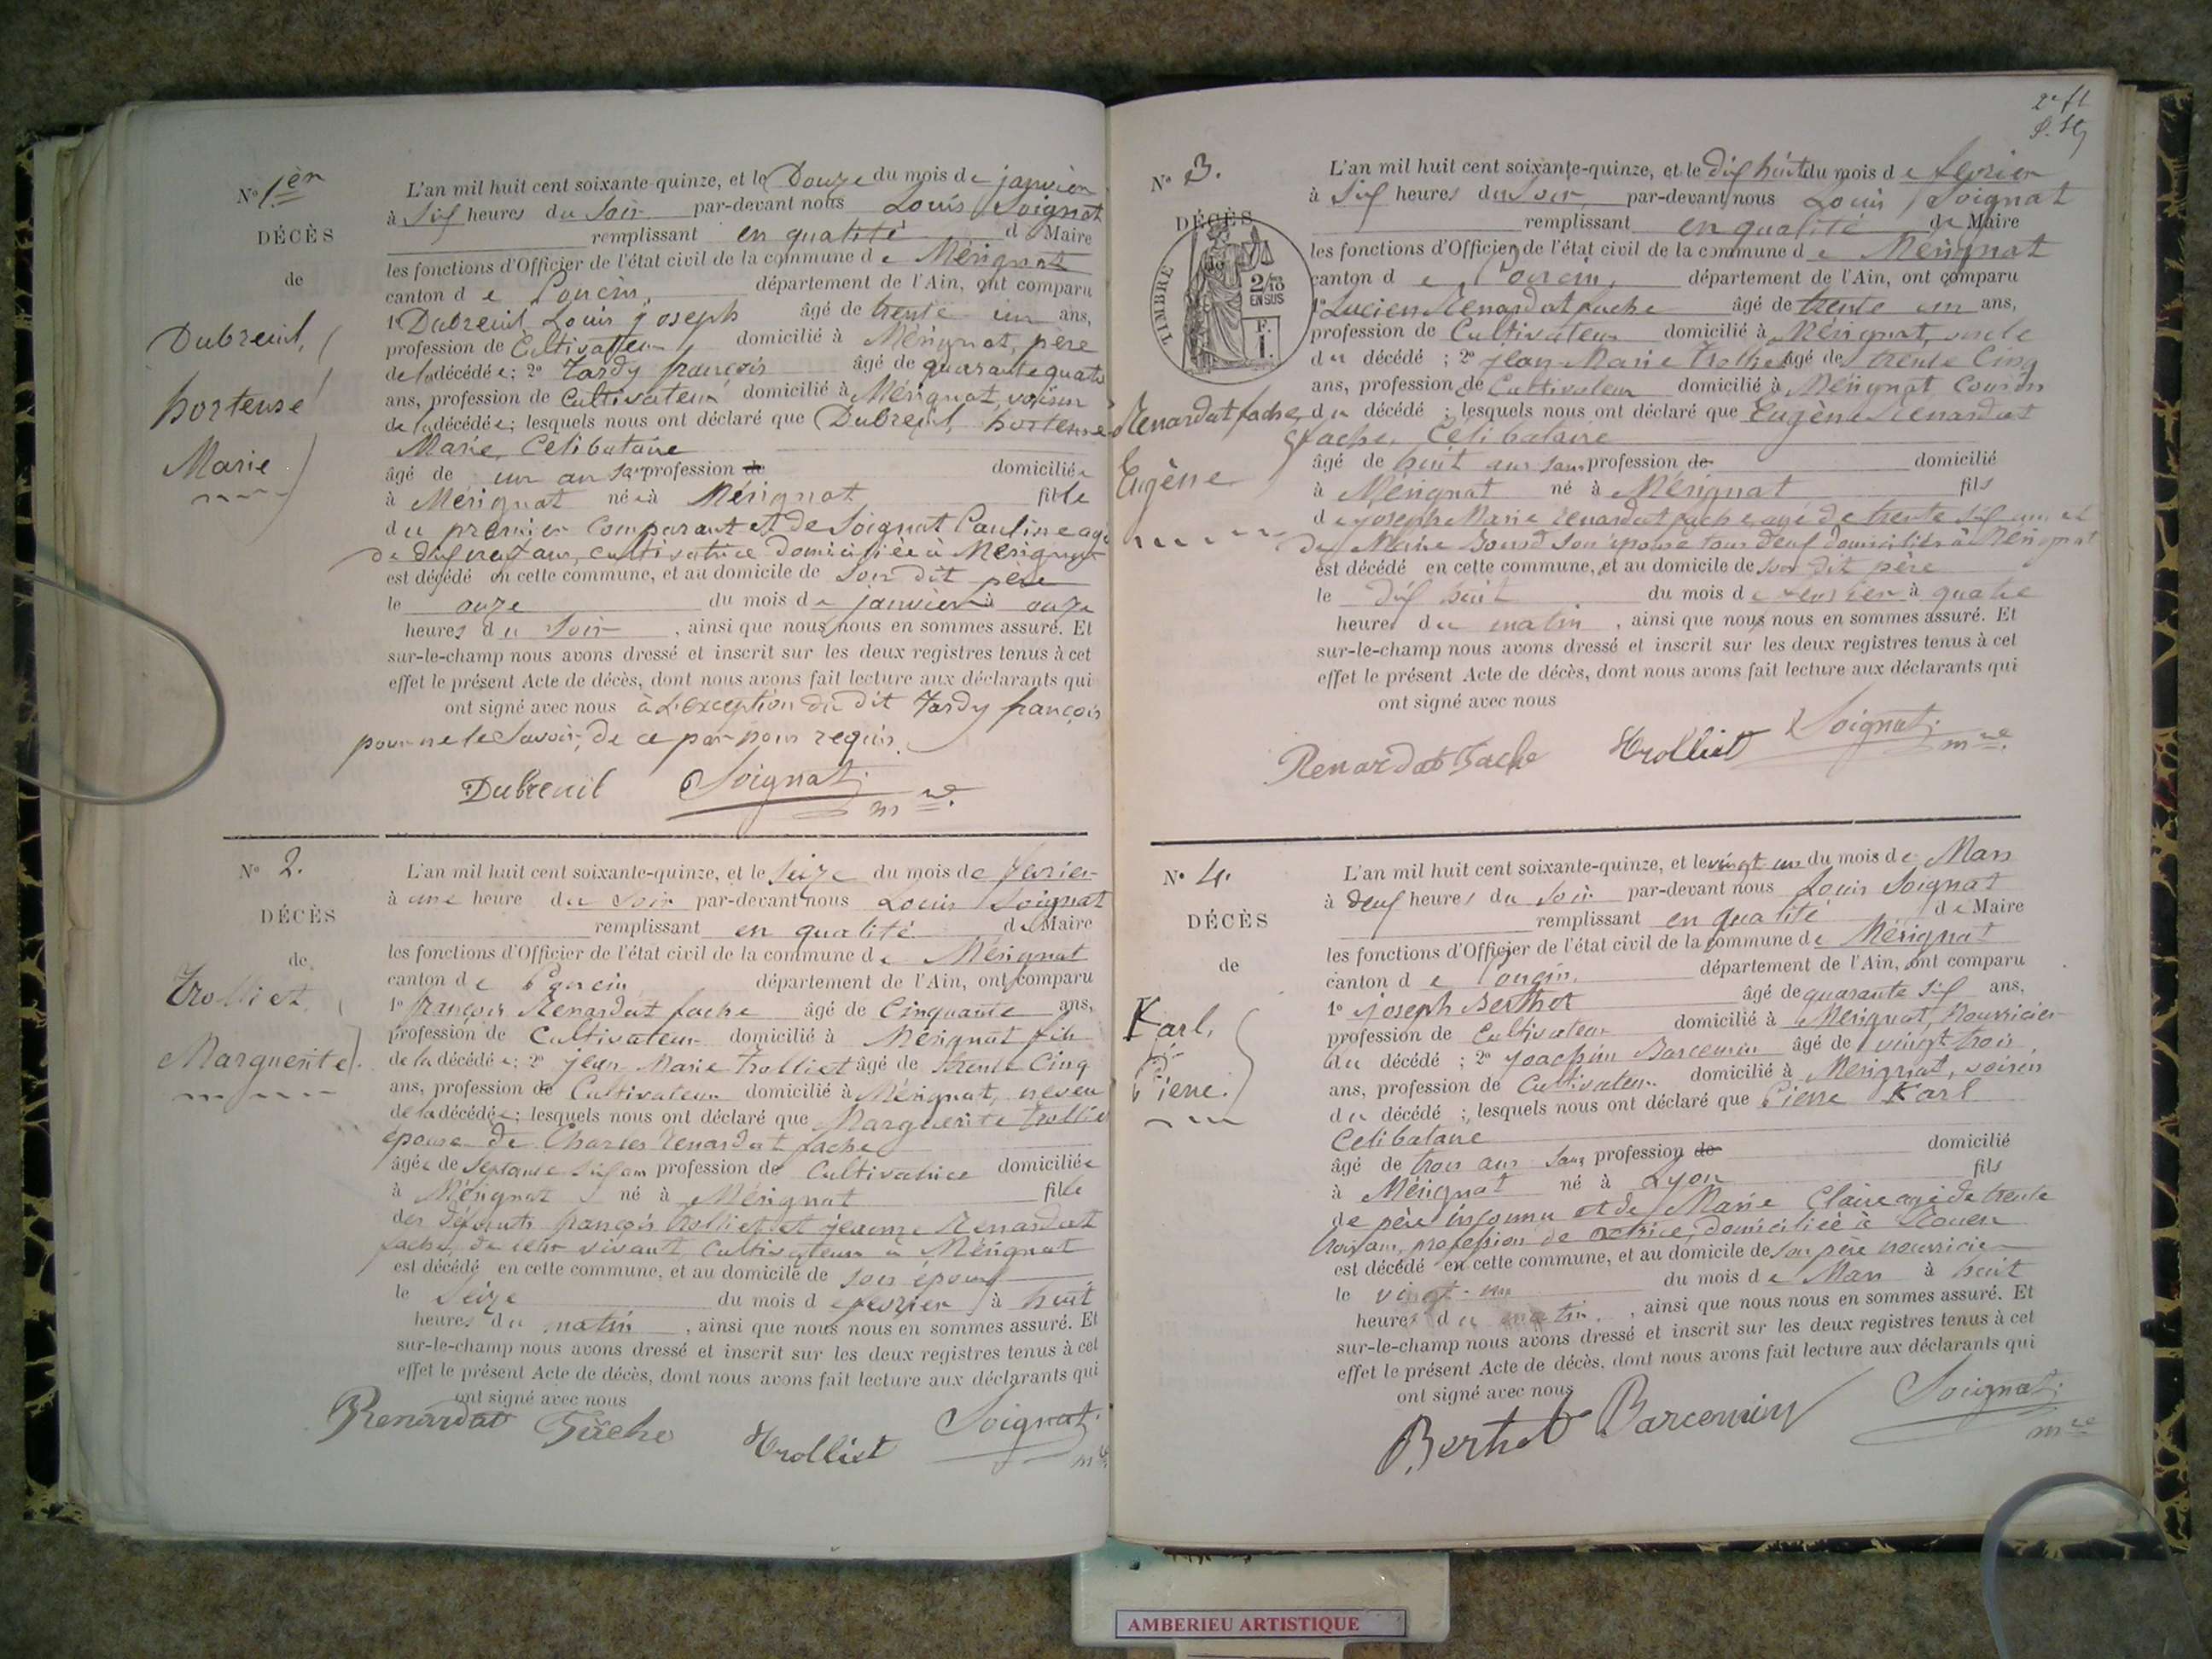 N° 1er
DÉCÈS
de
Dubreuil,
hortense
Marie
L'an mil huit cent soixante-quinze, et le Douze du mois de janvier
à Six heures du Soir par-devant nous Louis Soignat
remplissant en qualité de Maire
les fonctions d'Officier de l'état civil de la commune de Mérignat
canton de Poncin, département de l'Ain, ont comparu
1° Dubreuil Louis joseph âgé de trente un ans,
profession de Cultivateur domicilié à Mérignat, père
de la décédée; 2° Tardy françois âgé de quarante quatre
ans, profession de Cultivateur domicilié à Mérignat, voisin
de la décédée; lesquels nous ont déclaré que Dubreuil, hortense
Marie, Celibataire
âgé de un an sans profession de domiciliée
à Mérignat née à Mérignat fille
du premier Comparant et de Soignat Pauline agée
de dix neuf ans, cultivatrice domiciliée à Mérignat
est décédé en cette commune, et au domicile de son dit père
le onze du mois de janvier à onze
heures du Soir, ainsi que nous nous en sommes assuré. Et
sur-le-champ nous avons dressé et inscrit sur les deux registres tenus à cet
effet le présent Acte de décès, dont nous avons fait lecture aux déclarants qui
ont signé avec nous à L'exception du dit Tardy françois
pour ne le Savoir, de ce par nous requis.
Dubreuil Soignat mre
N° 2.
DÉCÈS
de
Trolliet
Marguerite
L'an mil huit cent soixante-quinze, et le Seize du mois de fevrier
à une heure du Soir par-devant nous Louis Soignat
remplissant en qualité de Maire
les fonctions d'Officier de l'état civil de la commune de Mérignat
canton de Poncin département de l'Ain, ont comparu
1° françois Renardat fache âgé de Cinquante ans,
profession de Cultivateur domicilié à Mérignat fils
de la décédée; 2° jean Marie Trolliet âgé de trente Cinq
ans, profession de Cultivateur domicilié à Mérignat, neveu
de la décédée; lesquels nous ont déclaré que Marguerite Trolliet
épouse de Charles Renardat fache
âgée de Septante Six ans profession de Cultivatrice domiciliée
à Mérignat né à Mérignat fille
des défunts françois Trolliet et jeanne Renardat
fache, de leur vivant, Cultivateurs à Mérignat
est décédé en cette commune, et au domicile de son époux
le Seize du mois de fevrier à huit
heures du matin, ainsi que nous nous en sommes assuré. Et
sur-le-champ nous avons dressé et inscrit sur les deux registres tenus à cet
effet le présent Acte de décès, dont nous avons fait lecture aux déclarants qui
ont signé avec nous
Renardat Fache Trolliet Soignat mre
2e ft
N° 3.
DÉCÈS
de
TIMBRE
2/10
EN SUS
F.
1.
Renardat fache
Eugène
L'an mil huit cent soixante-quinze, et le dix huit du mois de fevrier
à Six heures du Soir, par-devant nous Louis Soignat
remplissant en qualité de Maire
les fonctions d'Officier de l'état civil de la commune de Mérignat
canton de Poncin, département de l'Ain, ont comparu
1° Lucien Renardat fache âgé de trente un ans,
profession de Cultivateur domicilié à Mérignat, oncle
du décédé; 2° jean Marie Trolliet âgé de trente Cinq
ans, profession de Cultivateur domicilié à Mérignat Cousin
du décédé; lesquels nous ont déclaré que Eugène Renardat
fache, Célibataire
âgé de huit ans sans profession de domicilié
à Mérignat né à Mérignat fils
de joseph Marie Renardat fache agé de trente six ans et
de Marie son épouse tous deux domiciliés à Mérignat
est décédé en cette commune, et au domicile de son dit père
le dix huit du mois de fevrier à quatre
heures du matin, ainsi que nous nous en sommes assuré. Et
sur-le-champ nous avons dressé et inscrit sur les deux registres tenus à cet
effet le présent Acte de décès, dont nous avons fait lecture aux déclarants qui
ont signé avec nous
Renardat Fache Trolliet Soignat mre
N° 4.
DÉCÈS
de
Karl,
Pierre
L'an mil huit cent soixante-quinze, et le vingt un du mois de Mars
à deux heures du Soir par-devant nous Louis Soignat
remplissant en qualité de Maire
les fonctions d'Officier de l'état civil de la commune de Mérignat
canton de Poncin, département de l'Ain, ont comparu
1° joseph Berthet âgé de quarante Six ans,
profession de Cultivateur domicilié à Mérignat, Nourricier
du décédé; 2° joachim Barcemin âgé de vingt trois
ans, profession de Cultivateur domicilié à Mérignat, voisin
du décédé; lesquels nous ont déclaré que Pierre Karl
Celibataire
âgé de trois ans Sans profession de domicilié
à Mérignat né à Lyon fils
de père inconnu et de Marie Claire agée de trente
trois ans, profession de actrice, domiciliée à Rouen
est décédé en cette commune, et au domicile de son père nourricier
le vingt-un du mois de Mars à huit
heures du matin, ainsi que nous nous en sommes assuré. Et
sur-le-champ nous avons dressé et inscrit sur les deux registres tenus à cet
effet le présent Acte de décès, dont nous avons fait lecture aux déclarants qui
ont signé avec nous
Berthet Barcemin Soignat mre
AMBERIEU ARTISTIQUE